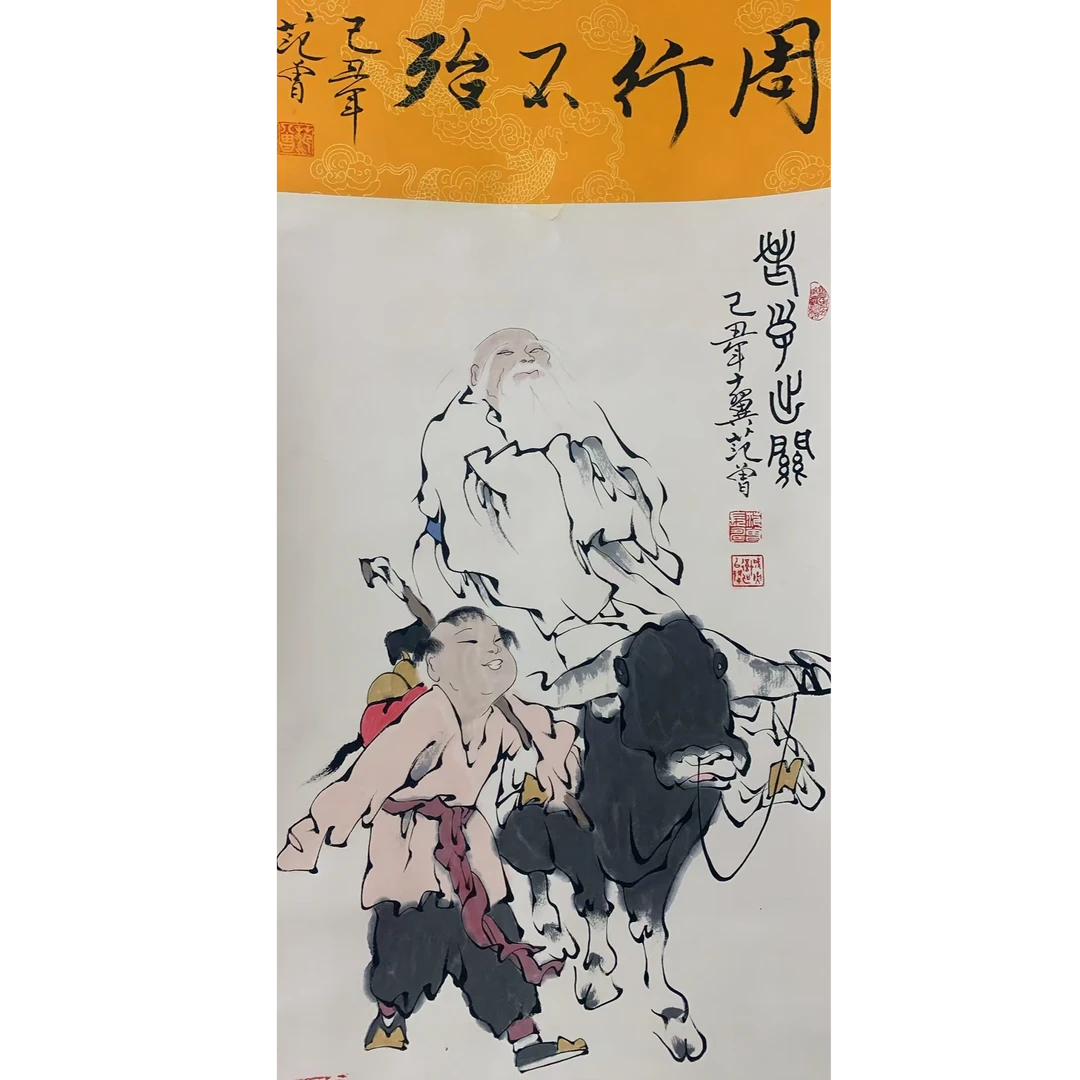 周行不殆
己丑年
范曾
老子出關
己丑年十翼范曾